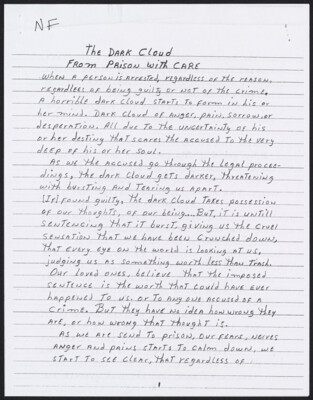 NF
The Dark Cloud
From Prison with Care
When a person is arrested, regardless of the reason,
regardless of being guilty or not of the crime.
A horrible dark cloud starts to form in his or
her mind. Dark cloud of anger, pain, sorrow, or
desperation. All due to the uncertainty of his
or her destiny that scares the accused to the very
deep of his or her soul.
As we the accused go through the legal procee-
dings, the dark cloud gets darker, threatening
with bursting and tearing us apart.
[If] found guilty, the dark cloud takes possession
of our thoughts, of our being... But, it is untill
sentencing that it burst, giving us the cruel
sensation that we have been crunched down,
that every eye on the world is looking at us,
judging us as something worth less than trash.
Our loved ones, believe that the imposed
sentence is the worth that could have ever
happened to us, or to any one accused of a
crime. But they have no idea how wrong they
are, or how wrong that thought is.
As we are send to prison, our fears, nerves
anger and pains starts to calm down, we
start to see clear, that regardless of
1